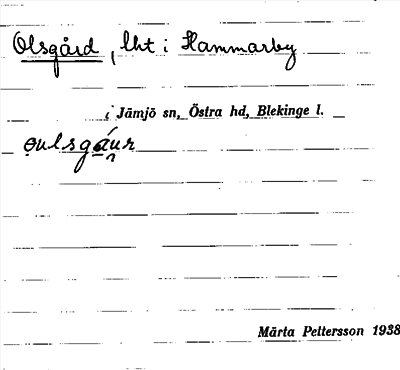 Olsgård, lht i Hammarby
i Jämjö sn, Östra hd, Blekinge l.
ọulsgá̱u̯r
Märta Pettersson 1938